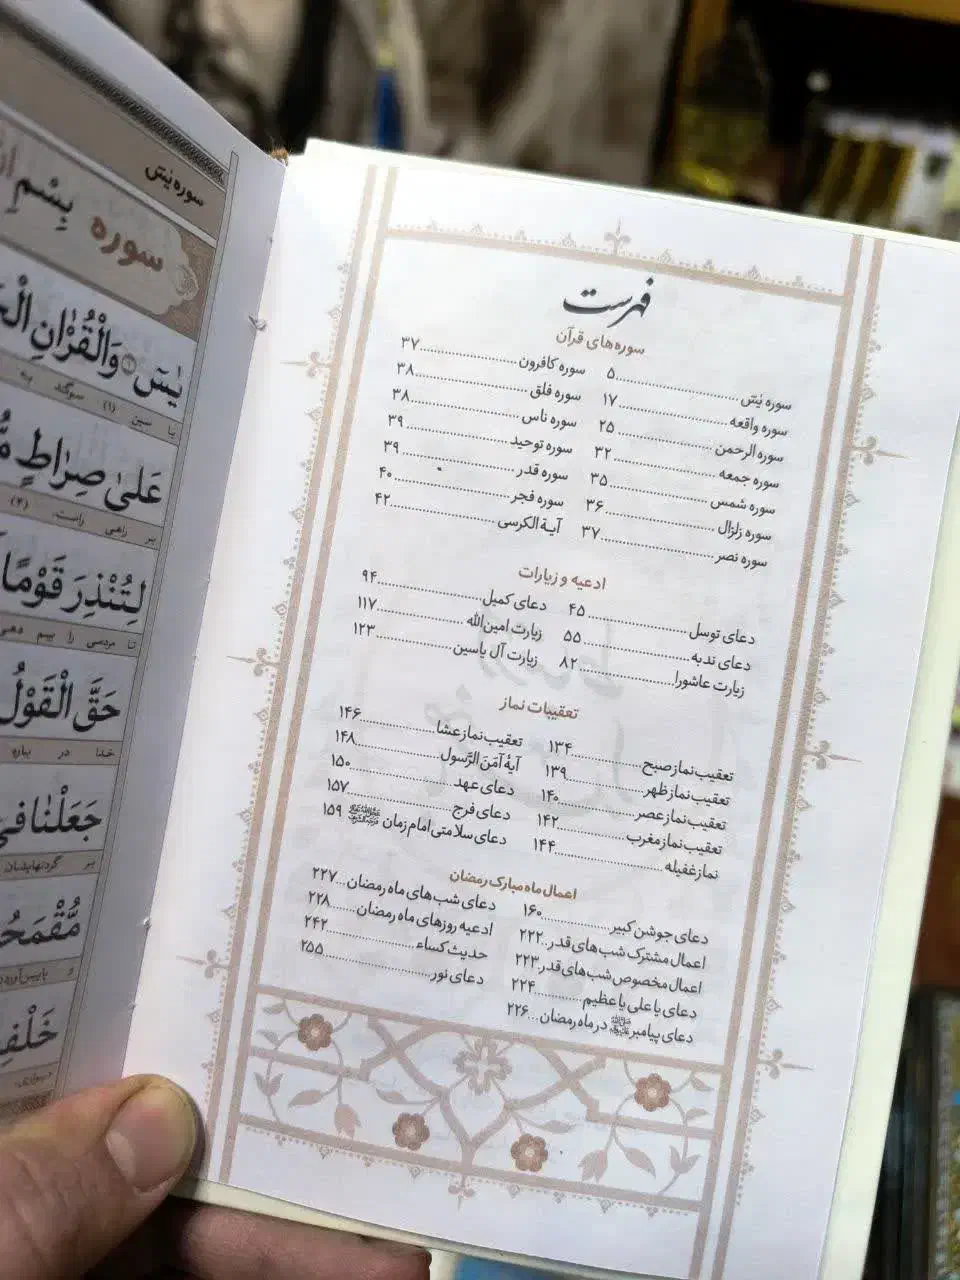 فهرست
سوره‌های قرآن
سوره یٰسٓ ۵
سوره واقعه ۱۷
سوره الرحمن ۲۵
سوره جمعه ۳۲
سوره شمس ۳۵
سوره زلزال ۳۶
سوره نصر ۳۷
سوره کافرون ۳۷
سوره فلق ۳۸
سوره ناس ۳۸
سوره توحید ۳۹
سوره قدر ۳۹
سوره فجر ۴۰
آیة الکرسی ۴۲
ادعیه و زیارات
دعای توسل ۴۵
دعای ندبه ۵۵
زیارت عاشورا ۸۲
دعای کمیل ۹۴
زیارت امین‌الله ۱۱۷
زیارت آل یاسین ۱۲۳
تعقیبات نماز
تعقیب نماز صبح ۱۳۴
تعقیب نماز ظهر ۱۳۹
تعقیب نماز عصر ۱۴۰
تعقیب نماز مغرب ۱۴۲
نماز غفیله ۱۴۴
تعقیب نماز عشا ۱۴۶
آیۀ آمَنَ الرَّسول ۱۴۸
دعای عهد ۱۵۰
دعای فرج ۱۵۷
دعای سلامتی امام زمان ۱۵۹
اعمال ماه مبارک رمضان
دعای جوشن کبیر ۱۶۰
اعمال مشترک شب‌های قدر ۲۲۲
اعمال مخصوص شب‌های قدر ۲۲۳
دعای یا علی یا عظیم ۲۲۴
دعای پیامبر ﷺ در ماه رمضان ۲۲۶
دعای شب‌های ماه رمضان ۲۲۷
ادعیه روزهای ماه رمضان ۲۲۸
حدیث کساء ۲۴۲
دعای نور ۲۵۵
سوره یٰسٓ
سوره
بِسْمِ
یٰسٓ ﴿۱﴾ وَالْقُرْاٰنِ
یا سین (۱) سوگند به
عَلیٰ صِرٰاطٍ
بر راهی راست. (۴)
لِتُنْذِرَ قَوْمًا
تا مردمی را بیم دهی
حَقَّ الْقَوْلُ
خدا در باره
جَعَلْنٰا فی
بر گردنهایشان
مُّقْمَحُ
خَلْفِ